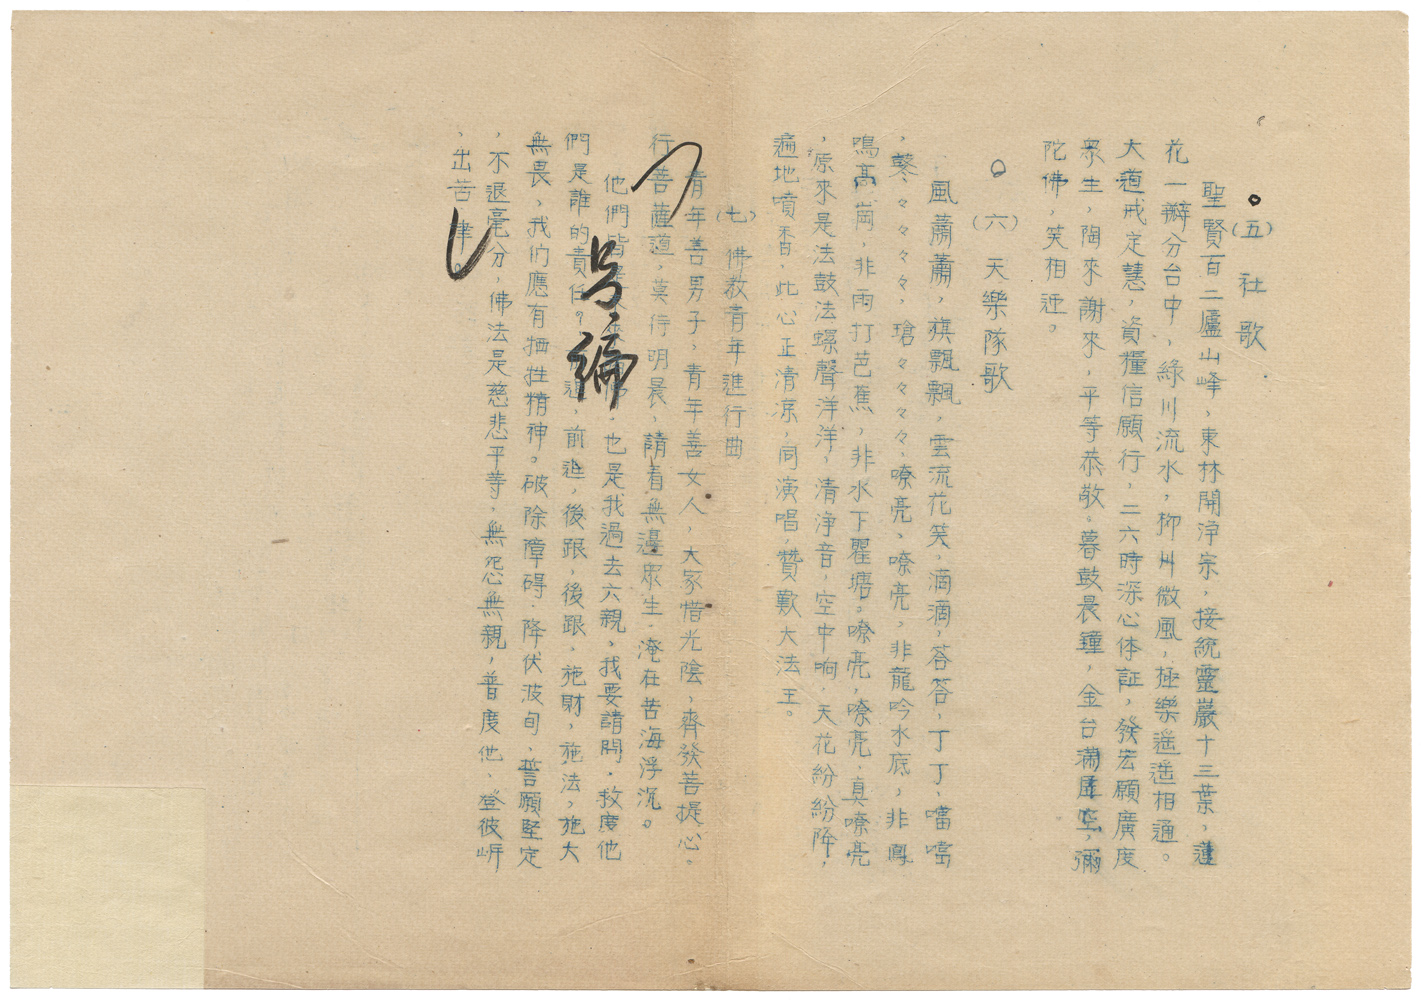 (五) 社歌
聖賢百二廬山峰，東林開淨宗，接統靈巖十三葉，蓮
花一瓣分台中，綠川流水，柳川微風，極樂遙遙相通。
大道戒定慧，資糧信願行，二六時深心体証，發宏願廣度
眾生，陶來謝來，平等恭敬。暮鼓晨鐘，金台滿虛空，彌
陀佛，笑相迎。
(六) 天樂隊歌
風蕭蕭，旗飄飄，雲流花笑，滴滴，答答，丁丁、噹噹
，鼕、々、々、々、々，瑲々々々々、嘹亮、嘹亮，非龍吟水底，非鳳
鳴高崗，非雨打芭蕉，非水下瞿塘。嘹亮，嘹亮，真嘹亮
，原來是法鼓法螺聲洋洋，清淨音，空中响，天花紛紛降，
遍地噴香，此心正清涼，同演唱，贊歎大法王。
(七) 佛教青年進行曲
青年善男子，青年善女人，大家惜光陰，齊發菩提心。
行菩薩道，莫待明晨，請看無邊眾生，淹在苦海浮沉。
他們皆是，也是我過去六親，我要請問，救度他
們是誰的責任？進，前進，後跟，後跟，施財，施法，施大
無畏，我們應有牺牲精神。破除障碍，降伏波旬、誓願堅定
，不退毫分，佛法是慈悲平等，無怨無親，普度他、登彼岍
、出苦津。
另編